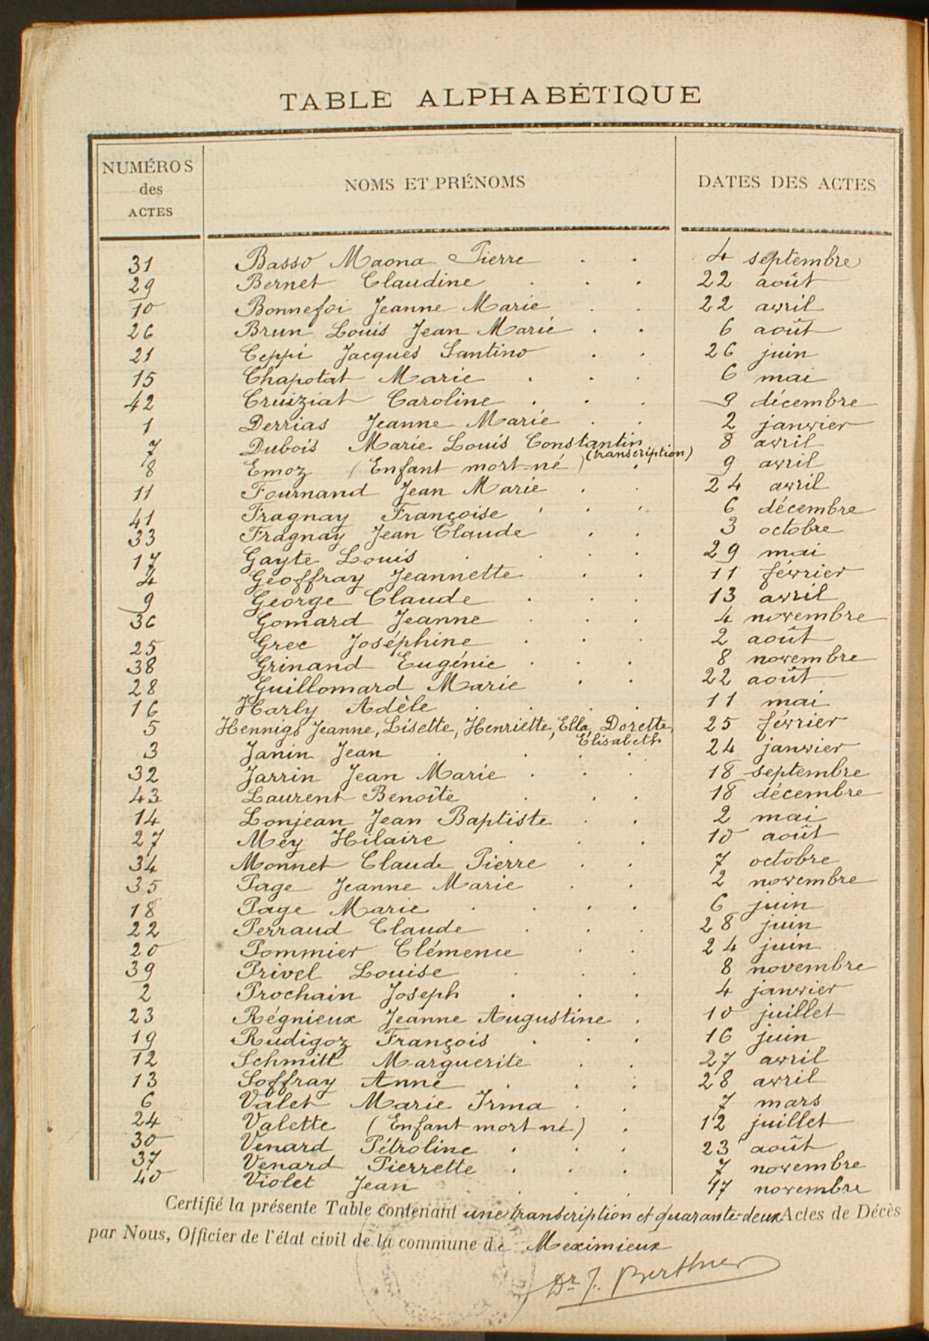 TABLE ALPHABÉTIQUE
NUMÉROS des ACTES NOMS ET PRÉNOMS DATES DES ACTES
31 Basso Maona Pierre . . 4 septembre
29 Bernet Claudine . . . 22 août
10 Bonnefoi Jeanne Marie . . 22 avril
26 Brun Louis Jean Marie . . 6 août
21 Ceppi Jacques Santino . . 26 juin
15 Chapotat Marie . . . 6 mai
42 Cruiziat Caroline . . . 9 décembre
1 Derrias Jeanne Marie . . 2 janvier
7 Dubois Marie Louis Constantin (transcription) 8 avril
8 Emoz (Enfant mort-né) . 9 avril
11 Fournand Jean Marie . . 24 avril
41 Fragnay Françoise . . . 6 décembre
33 Fragnay Jean Claude . . 3 octobre
17 Gayte Louis . . . 29 mai
4 Geoffray Jeannette . . 11 février
9 George Claude . . . 13 avril
36 Gomard Jeanne . . . 4 novembre
25 Grec Joséphine . . . 2 août
38 Grinand Eugénie . . . 8 novembre
28 Guillomard Marie . . 22 août
16 Harly Adèle . . . . 11 mai
5 Hennigs Jeanne, Lisette, Henriette, Ella, Dorette, Elisabeth 25 février
3 Janin Jean . . . . 24 janvier
32 Jarrin Jean Marie . . . 18 septembre
43 Laurent Benoîte . . . 18 décembre
14 Lonjean Jean Baptiste . . 2 mai
27 Mey Hilaire . . . 10 août
34 Monnet Claude Pierre . . 7 octobre
35 Page Jeanne Marie . . 2 novembre
18 Page Marie . . . . 6 juin
22 Perraud Claude . . . 28 juin
20 Pommier Clémence . . 24 juin
39 Privel Louise . . . 8 novembre
2 Prochain Joseph . . . 4 janvier
23 Régnieux Jeanne Augustine . 10 juillet
19 Rudigoz François . . . 16 juin
12 Schmitt Marguerite . . 27 avril
13 Soffray Anne . . . 28 avril
6 Valet Marie Irma . . 7 mars
24 Valette (Enfant mort né) . 12 juillet
30 Venard Pétroline . . . 23 août
37 Venard Pierrette . . . 7 novembre
40 Violet Jean . . . 17 novembre
Certifié la présente Table contenant une transcription et quarante-deux Actes de Décès
par Nous, Officier de l'état civil de la commune de Meximieux
Dr J. Berthier